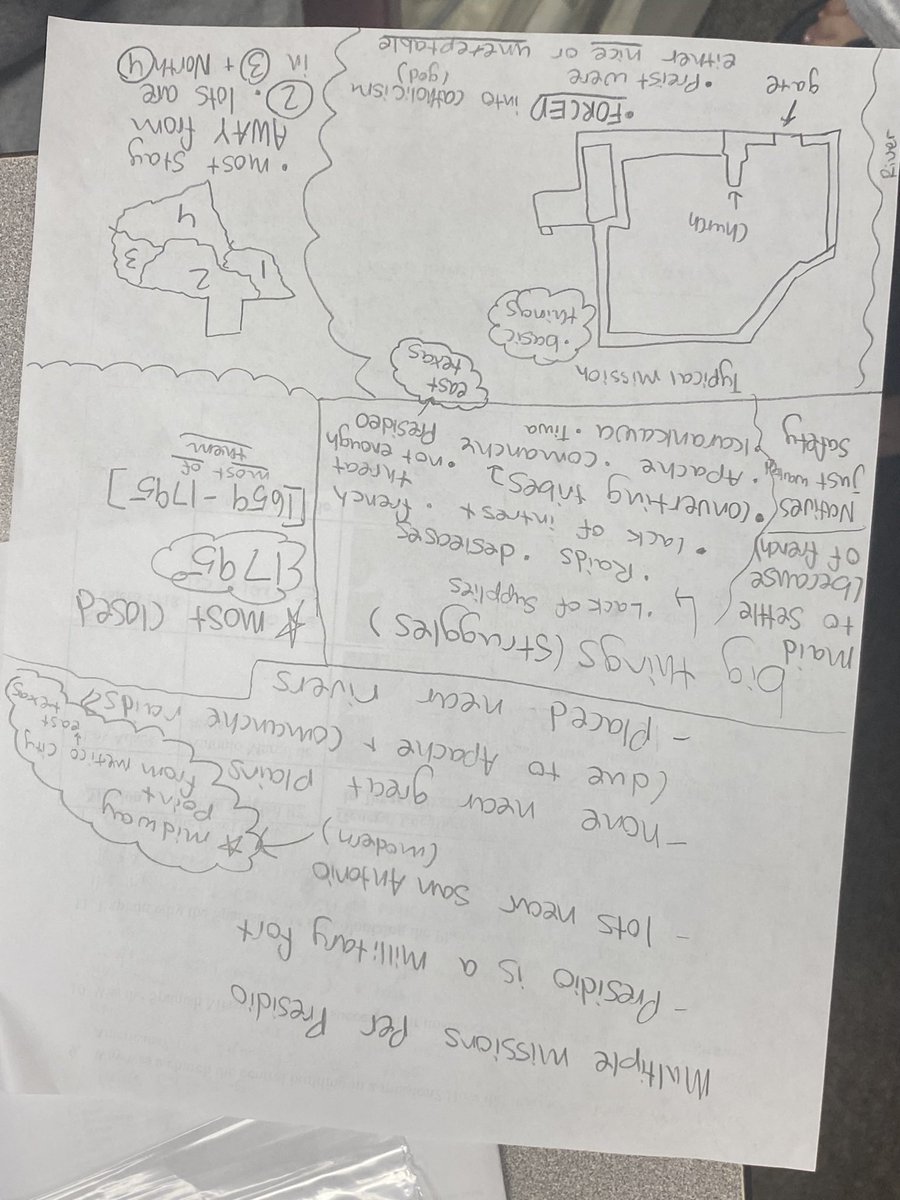 Multiple missions Per Presidio
- Presidio is a military fort
- lots near san Antonio
(modern)
☆ midway
point
from metico city
↓
east
texas
- none near great plains
(due to Apache + Comanche raids)
- Placed near rivers
big things (struggles)
↳ • Lack of supplies
• Raids • desieases
• Lack of intrest • french
threat
• converting tribes
• not enough
Presideo
• Apache • comanche
• Karankawa • Tiwa
east
texas
maid
to settle
(because
of french)
Natives
just wanted
safety
☆ most closed
1795
[1659-1795]
most of
them
Typical mission
• basic
things
church
gate
River
• FORCED into catholicism
(god)
• Preist were
either nice or uneteptable
1
2
3
4
• most stay
AWAY from
② • lots are
in ③ + North ④